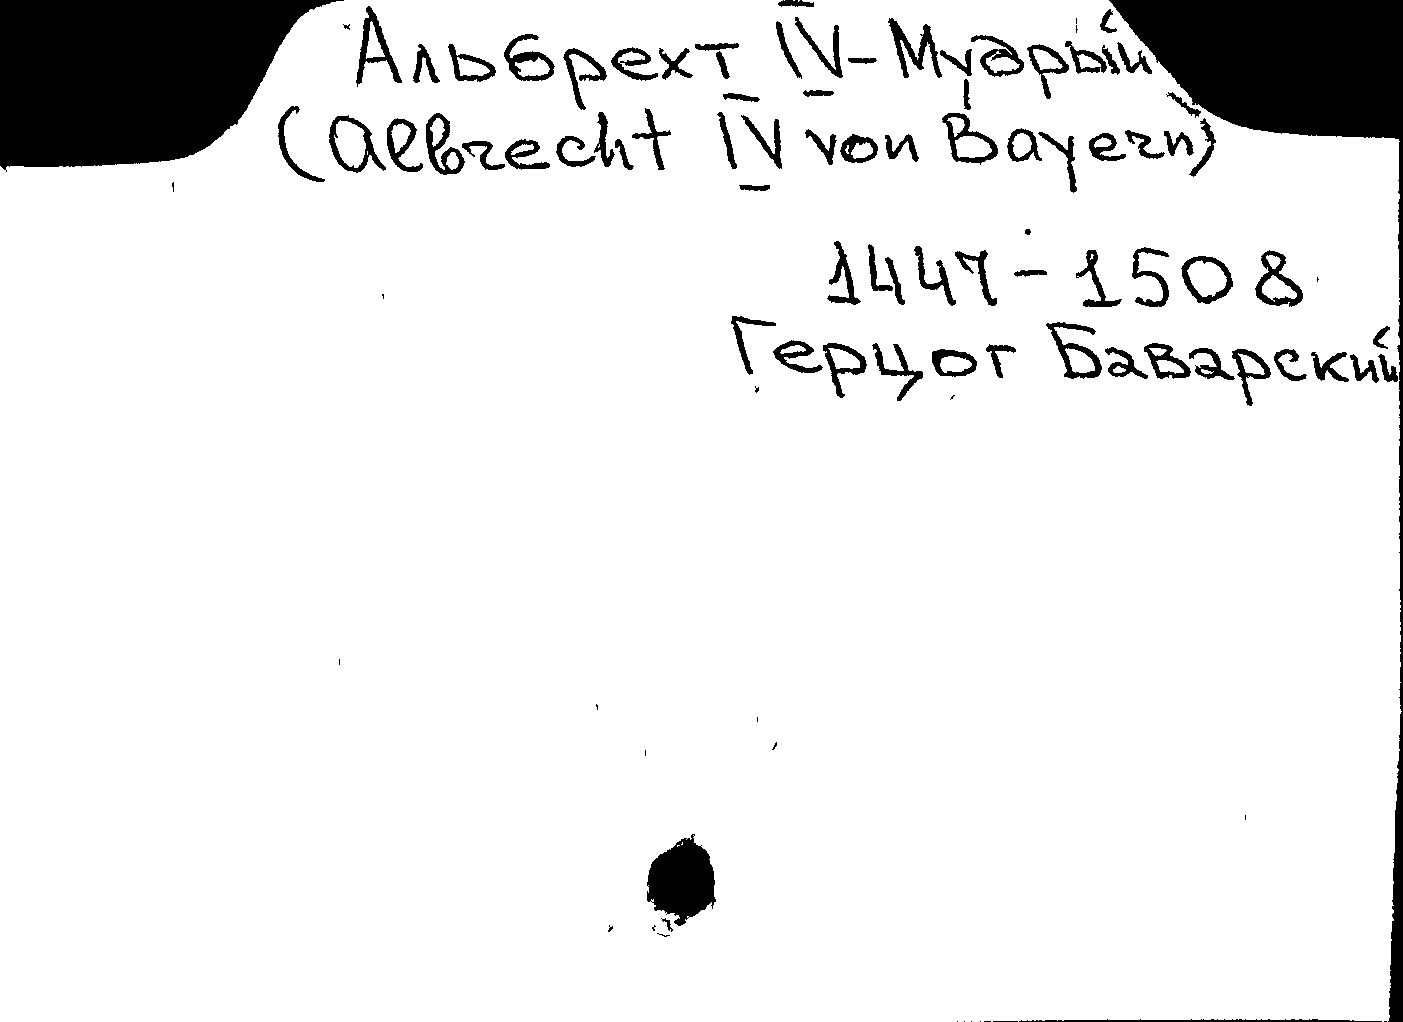 Альбрехт IV - Мудрый
(Albrecht IV von Bayern)
1447 - 1508
Герцог Баварский